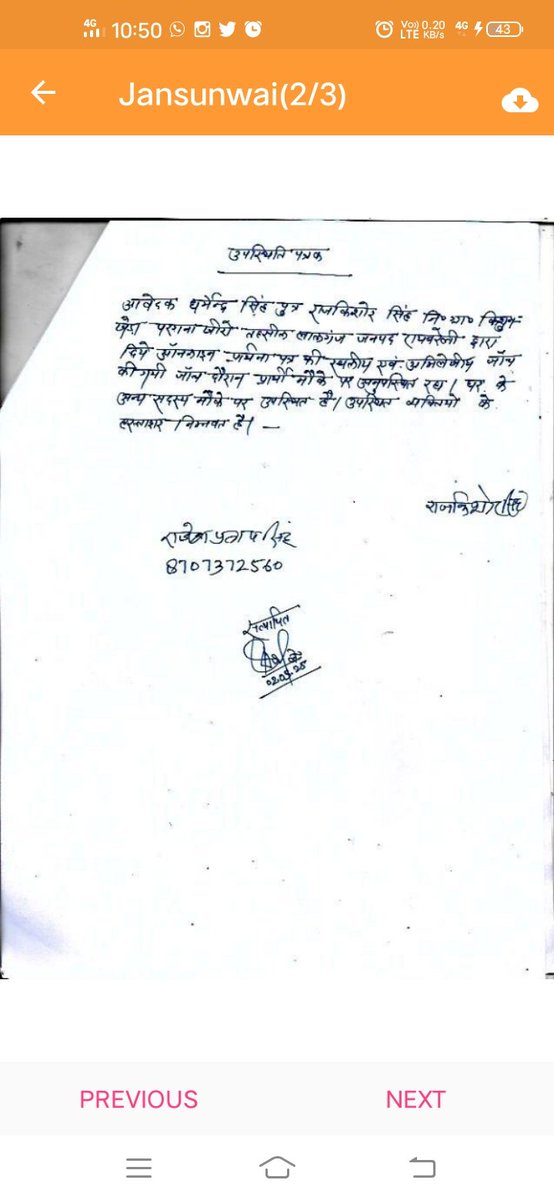 4G 10:50 Vo)) 0.20 LTE KB/s 4G 43
Jansunwai(2/3)
उपस्थिति पत्रक
आवेदक धर्मेन्द्र सिंह पुत्र राजकिशोर सिंह नि०ग्रा०
खेड़ा परगना खीरों तहसील लालगंज जनपद रायबरेली द्वारा
दिये ऑनलाइन प्रार्थना पत्र की स्थलीय एवं अभिलेखीय जाँच
की गयी जाँच दौरान प्रार्थी मौके पर अनुपस्थित रहा। घर के
अन्य सदस्य मौके पर उपस्थित है। उपस्थित व्यक्तियों के
हस्ताक्षर निम्नवत है। —
राजकिशोर सिंह
8707372560
सत्यापित
PREVIOUS NEXT